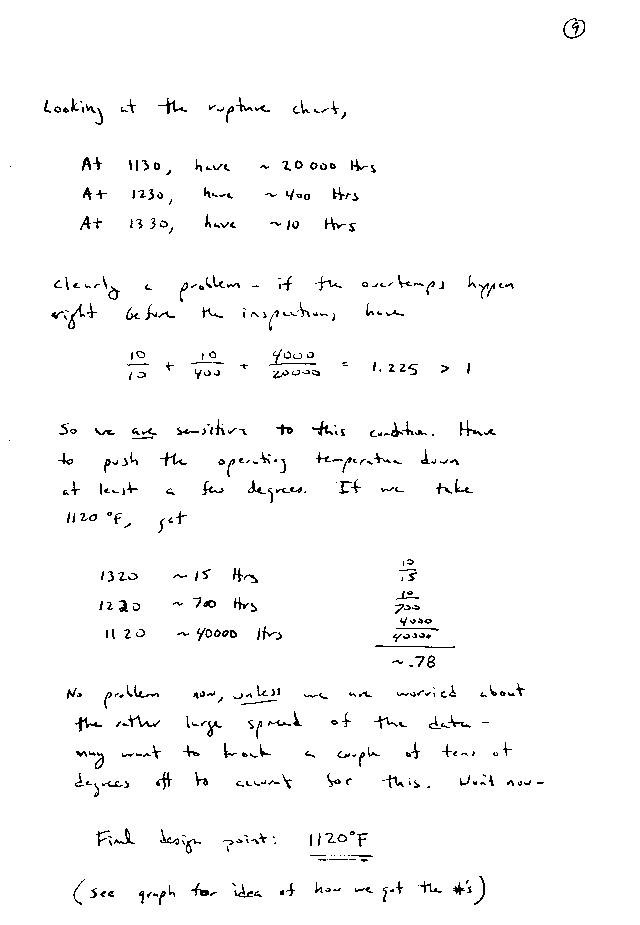 9
Looking at the rupture chart,
At 1130, have ~ 20000 Hrs
At 1230, have ~ 400 Hrs
At 1330, have ~10 Hrs
Clearly a problem - if the overtemps happen
right before the inspections, have
10/10 + 10/400 + 4000/20000 = 1.225 > 1
So we are sensitive to this condition. Have
to push the operating temperature down
at least a few degrees. If we take
1120 °F, get
1320 ~ 15 Hrs 10/15
1220 ~ 700 Hrs 10/700
1120 ~ 40000 Hrs 4000/40000
~.78
No problem now, unless we are worried about
the rather large spread of the data -
may want to knock a couple of tens of
degrees off to account for this. Won't now -
Final design point: 1120°F
(see graph for idea of how we got the #'s)